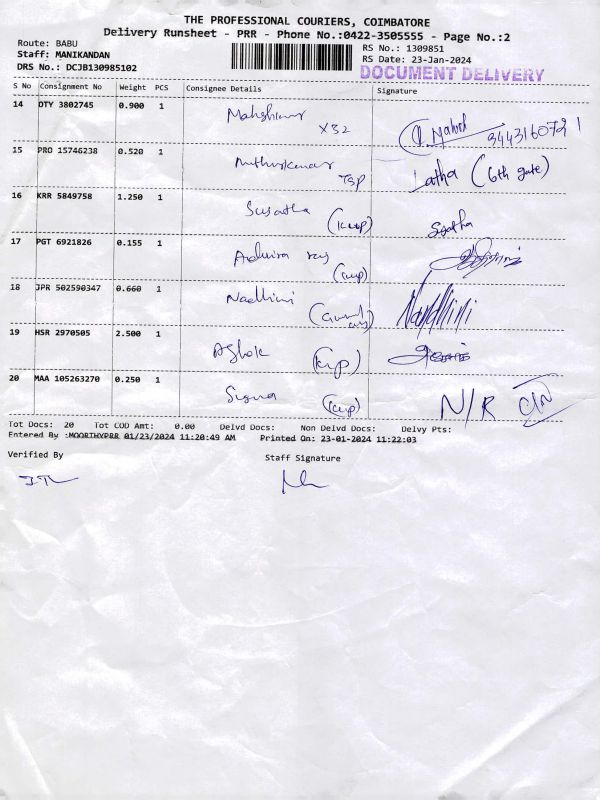 THE PROFESSIONAL COURIERS, COIMBATORE
Delivery Runsheet - PRR - Phone No.:0422-3505555 - Page No.:2
Route: BABU
Staff: MANIKANDAN
DRS No.: DCJB130985102
RS No.: 1309851
RS Date: 23-Jan-2024
DOCUMENT DELIVERY
S No Consignment No Weight PCS Consignee Details Signature
14 DTY 3802745 0.900 1 X32
15 PRO 15746238 0.520 1 Latha (6th gate)
16 KRR 5849758 1.250 1 Sujatha
17 PGT 6921826 0.155 1
18 JPR 502590347 0.660 1 Nadhini Nandhini
19 HSR 2970505 2.500 1 Ashok
20 MAA 105263270 0.250 1 N/R
Tot Docs: 20 Tot COD Amt: 0.00 Delvd Docs: Non Delvd Docs: Delvy Pts:
Entered By :MOORTHYPRR 01/23/2024 11:20:49 AM Printed On: 23-01-2024 11:22:03
Verified By Staff Signature